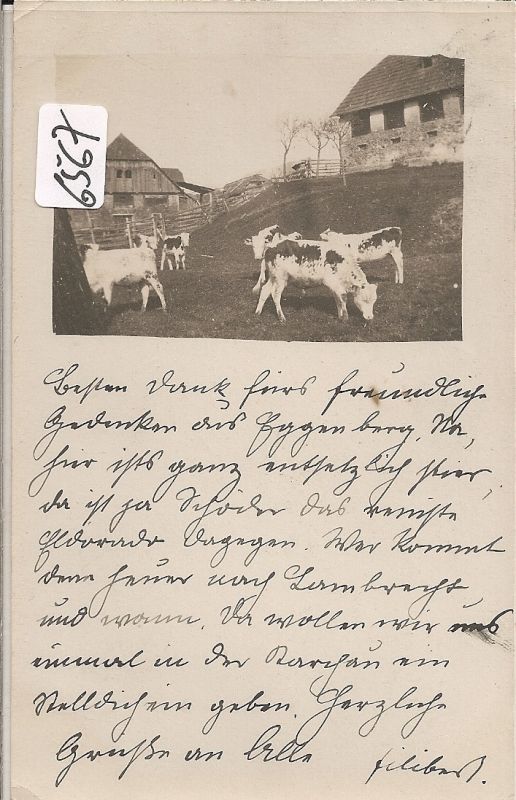 6567
Besten Dank fürs freundliche
Gedenken aus Eggenberg. Na,
hier ists ganz entsetzlich stier,
da ist ja Schöder das reinste
Eldorado dagegen. Wer kommt
denn heuer nach Lambrecht
und wann. Da wollen wir uns
einmal in der Karchau ein
Stelldichein geben. Herzliche
Grüße an Alle Filibert.